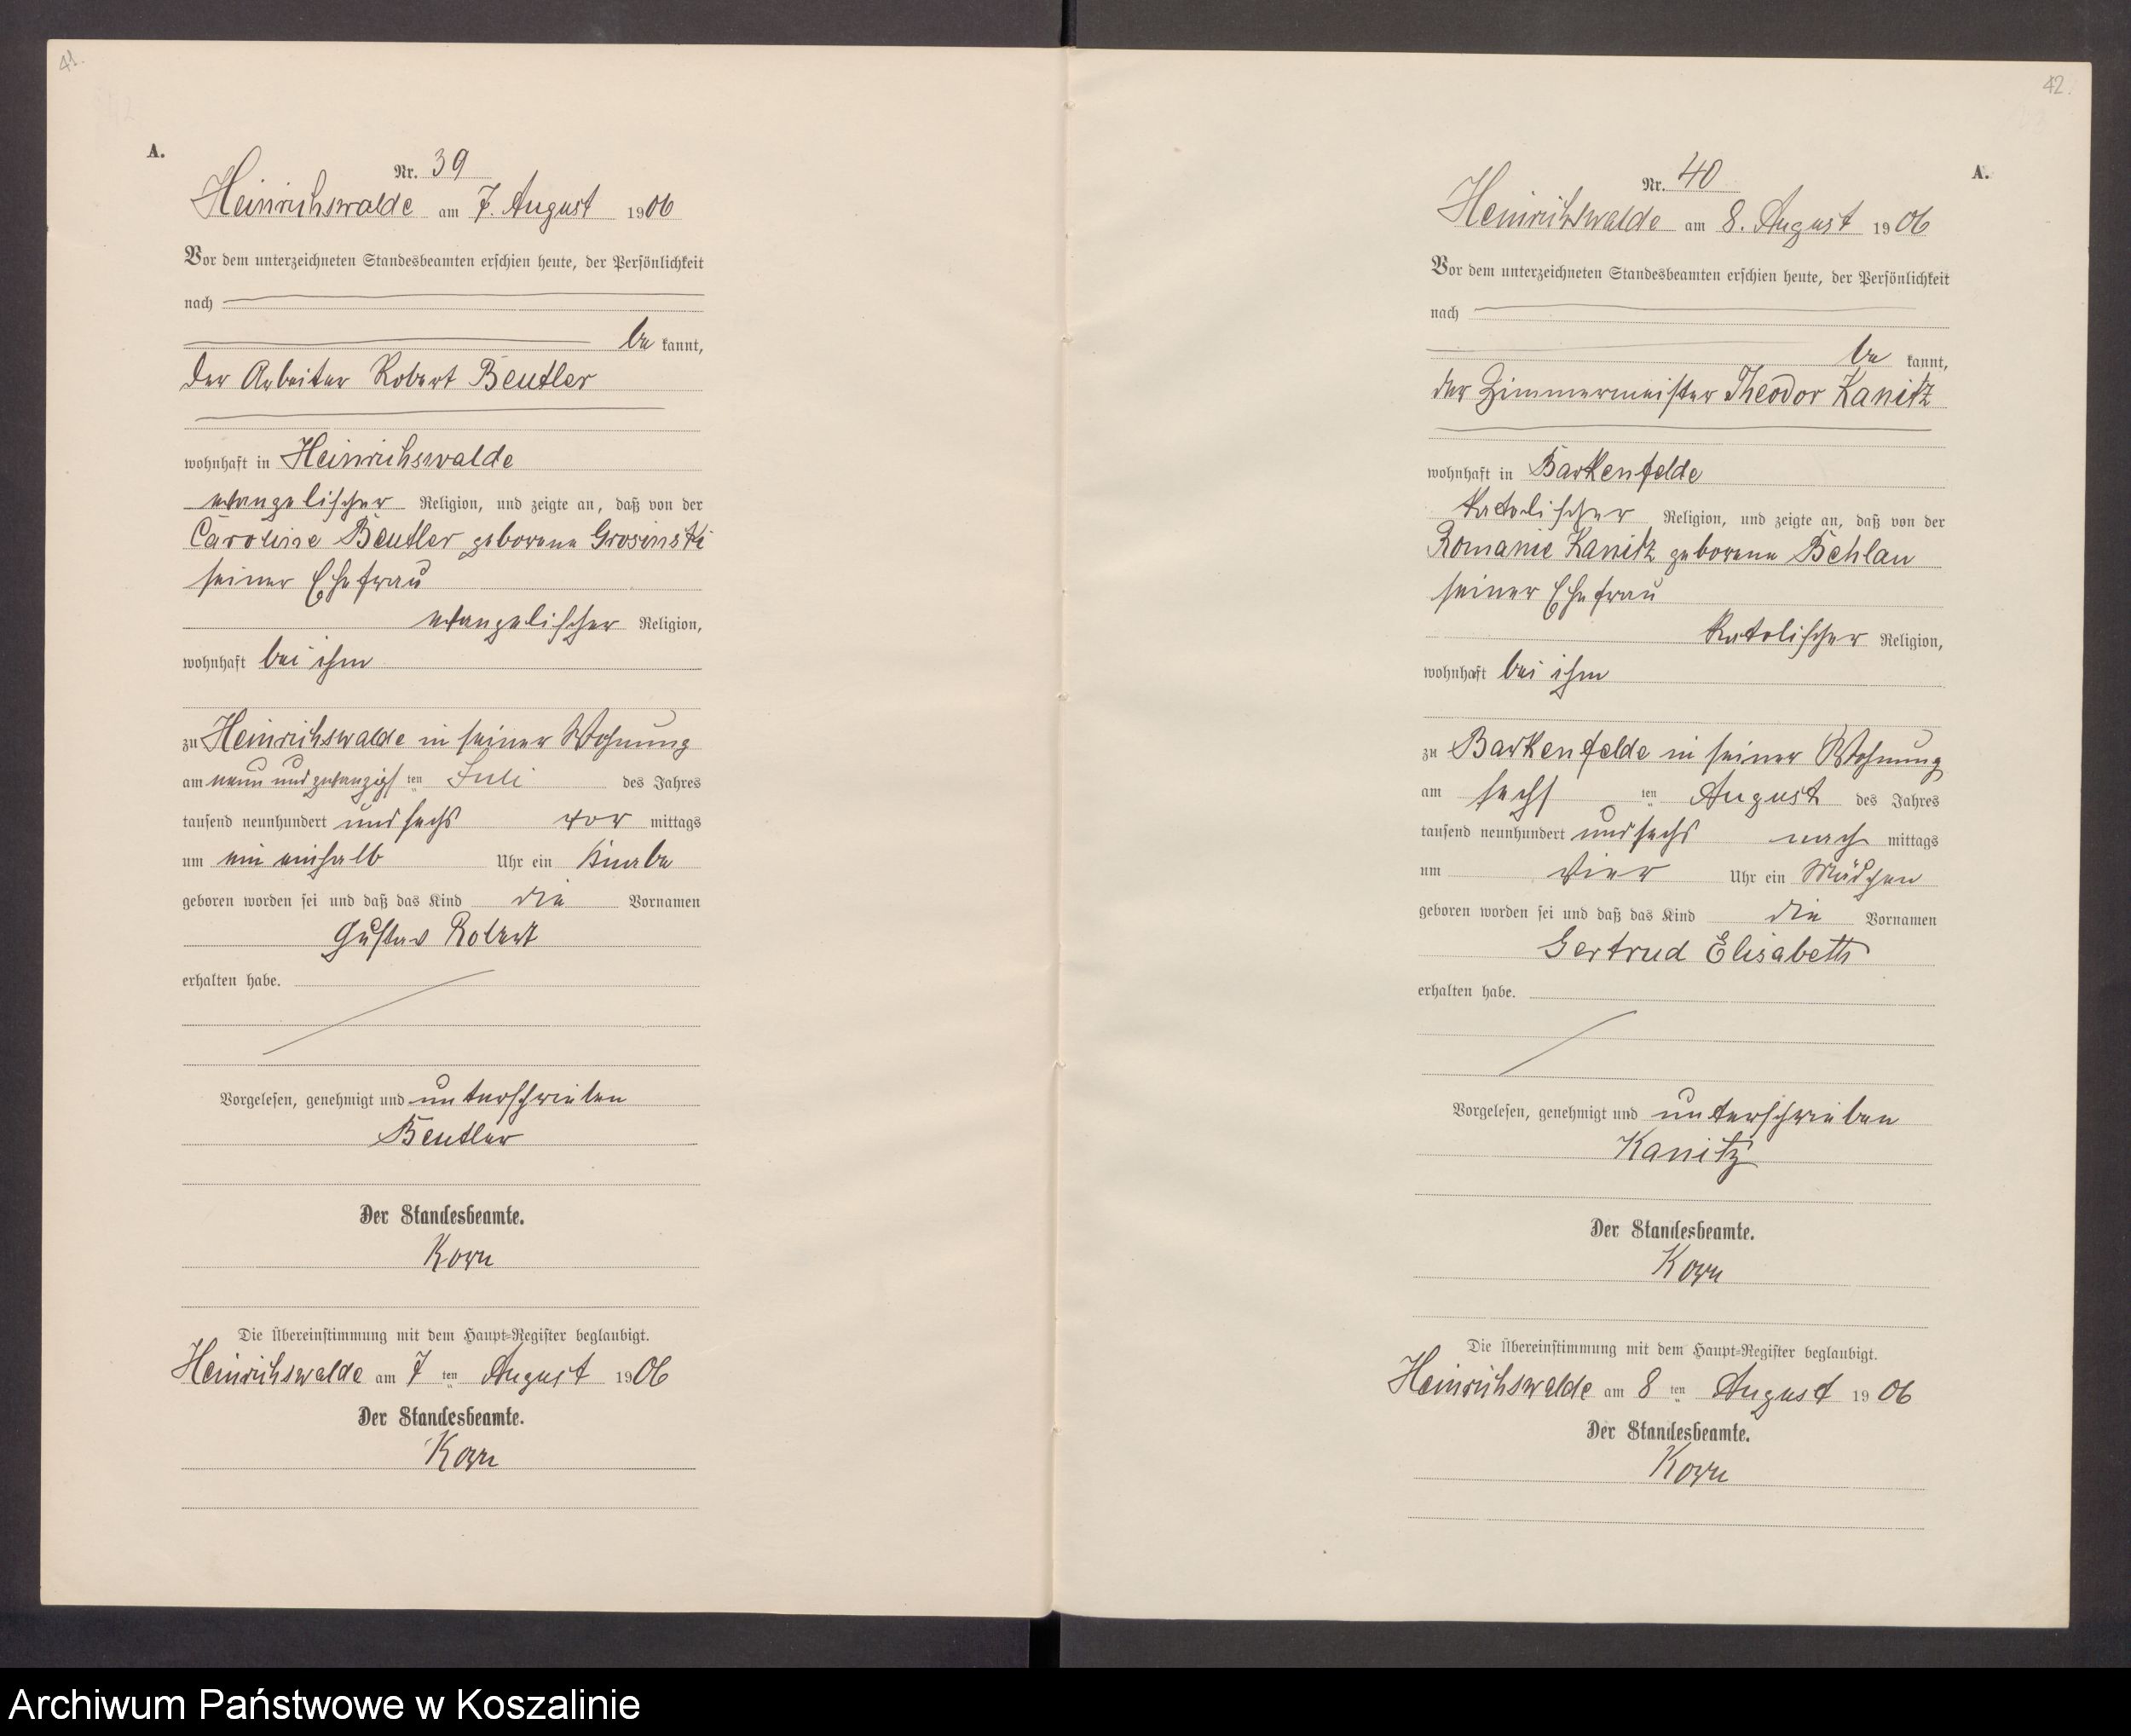 41.
A.
Nr. 39
Heinrichswalde am 7. August 1906
Vor dem unterzeichneten Standesbeamten erschien heute, der Persönlichkeit
nach
be kannt,
der Arbeiter Robert Beutler
wohnhaft in Heinrichswalde
evangelischer Religion, und zeigte an, daß von der
Caroline Beutler geborene Grosinski
seiner Ehefrau
evangelischer Religion,
wohnhaft bei ihm
zu Heinrichswalde in seiner Wohnung
am neun und zwanzigsten Juli des Jahres
tausend neunhundert und sechs vor mittags
um ein einhalb Uhr ein Knabe
geboren worden sei und daß das Kind die Vornamen
Gustav Robert
erhalten habe.
Vorgelesen, genehmigt und unterschrieben
Beutler
Der Standesbeamte.
Korn
Die Übereinstimmung mit dem Haupt-Register beglaubigt.
Heinrichswalde am 7 ten August 1906
Der Standesbeamte.
Korn
42.
A.
Nr. 40
Heinrichswalde am 8. August 1906
Vor dem unterzeichneten Standesbeamten erschien heute, der Persönlichkeit
nach
be kannt,
der Zimmermeister Theodor Kanitz
wohnhaft in Barkenfelde
katolischer Religion, und zeigte an, daß von der
Romanie Kanitz geborene Behlau
seiner Ehefrau
katolischer Religion,
wohnhaft bei ihm
zu Barkenfelde in seiner Wohnung
am sechs ten August des Jahres
tausend neunhundert und sechs nach mittags
um vier Uhr ein Mädchen
geboren worden sei und daß das Kind die Vornamen
Gertrud Elisabeth
erhalten habe.
Vorgelesen, genehmigt und unterschrieben
Kanitz
Der Standesbeamte.
Korn
Die Übereinstimmung mit dem Haupt-Register beglaubigt.
Heinrichswalde am 8 ten August 1906
Der Standesbeamte.
Korn
Archiwum Państwowe w Koszalinie